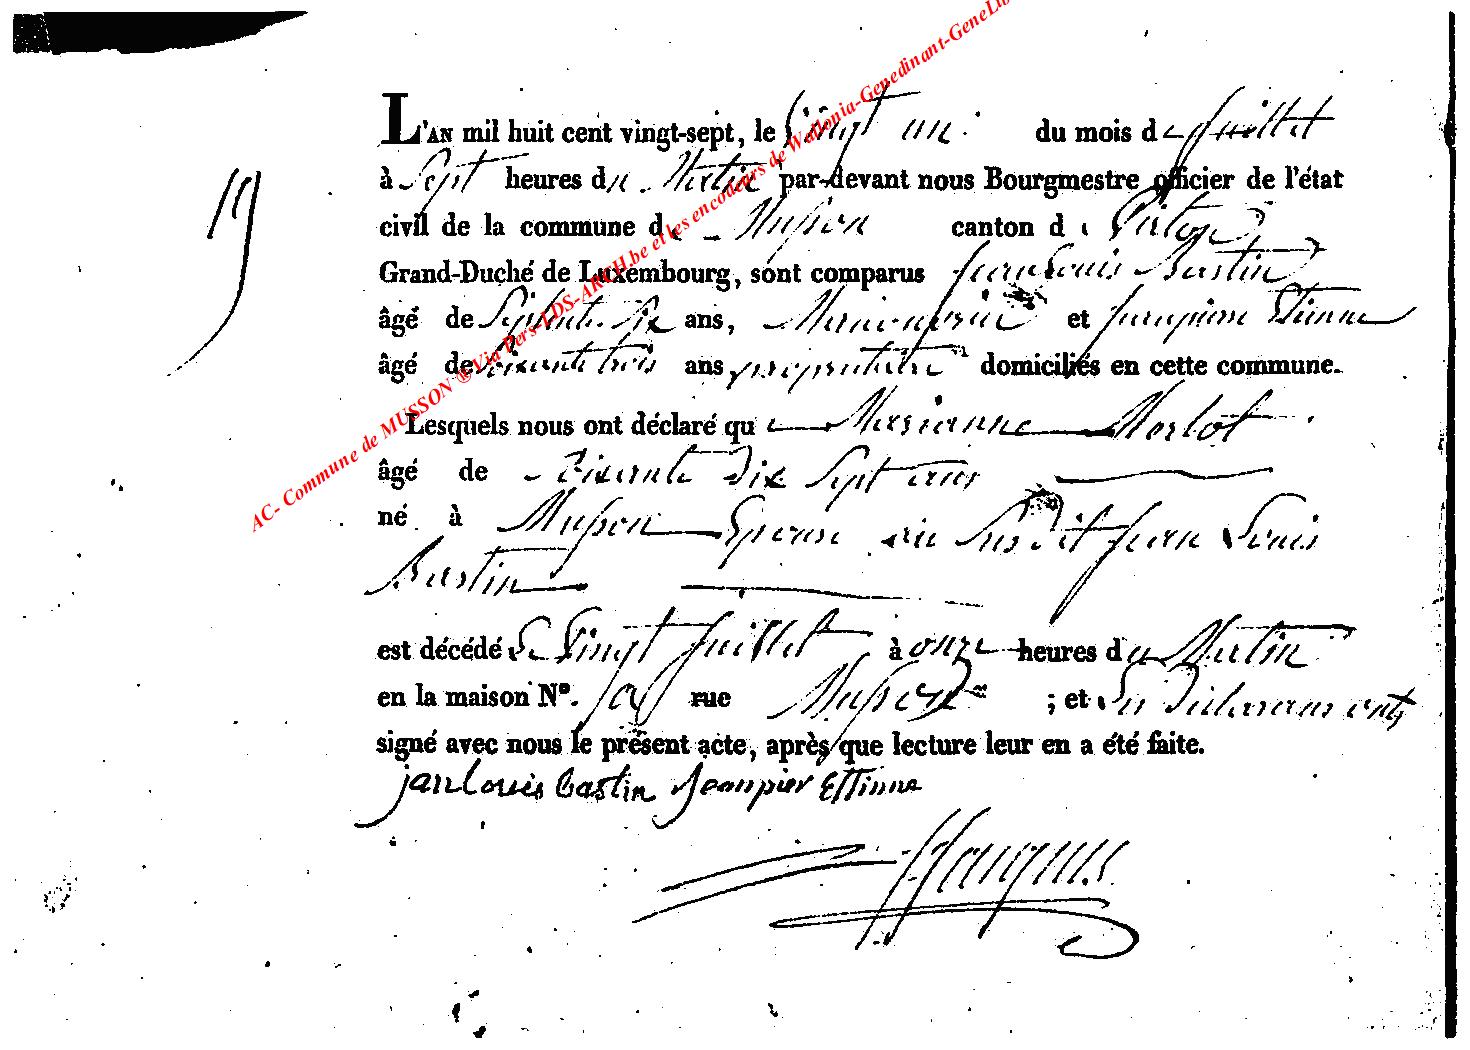 L'AN mil huit cent vingt-sept, le vingt un du mois de juillet
19
à Sept heures du Matin par-devant nous Bourgmestre officier de l'état
civil de la commune de Musson canton de Virton
Grand-Duché de Luxembourg, sont comparus Jean Louis Bastin
âgé de Septante Six ans, et Jeanpierre Etienne
âgé de Soixante trois ans proprietaire domiciliés en cette commune.
AC- Commune de MUSSON ® Via Pers-LDS-ARCH.be et les encodeurs de Wallonia-Genedinant-GeneLib
Lesquels nous ont déclaré que Marianne Merlot
âgé de Soixante Dix Sept ans
né à Musson Epouse du Susdit Jean Louis
Bastin
est décédé le Vingt Juillet à onze heures du Matin
en la maison Nº. rue Musson ; et les Déclarans ont
signé avec nous le présent acte, après que lecture leur en a été faite.
jan louis bastin Jeanpier Ettinne